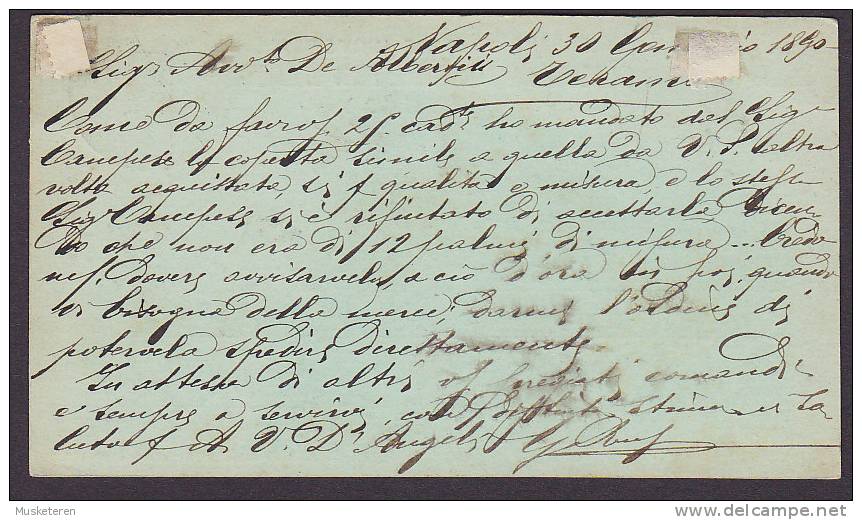 Napoli 30 Gennaio 1890
Sigr Avvto De Albertiis Teramo
Come da favof 25. cadte ho mandato al Sigr
Canepese la coperta simile a quella da V. S. altra
volta acquistata, si f qualità e misura, e lo stesso
Sigr Canepese si è rifiutato di accettarla dicen
do che non era di 12 palmi di misura ... Credo
dovere avvisarvelo, acciò d'ora in poi, quando
vi bisogna della merce, darmi l'ordine di
potervela spedire direttamente.
In attesa di altri pregiati comandi
e sempre a servirvi, con stima vi sa
luto f A V. D'Angelo
Musketeren
delcampe.net